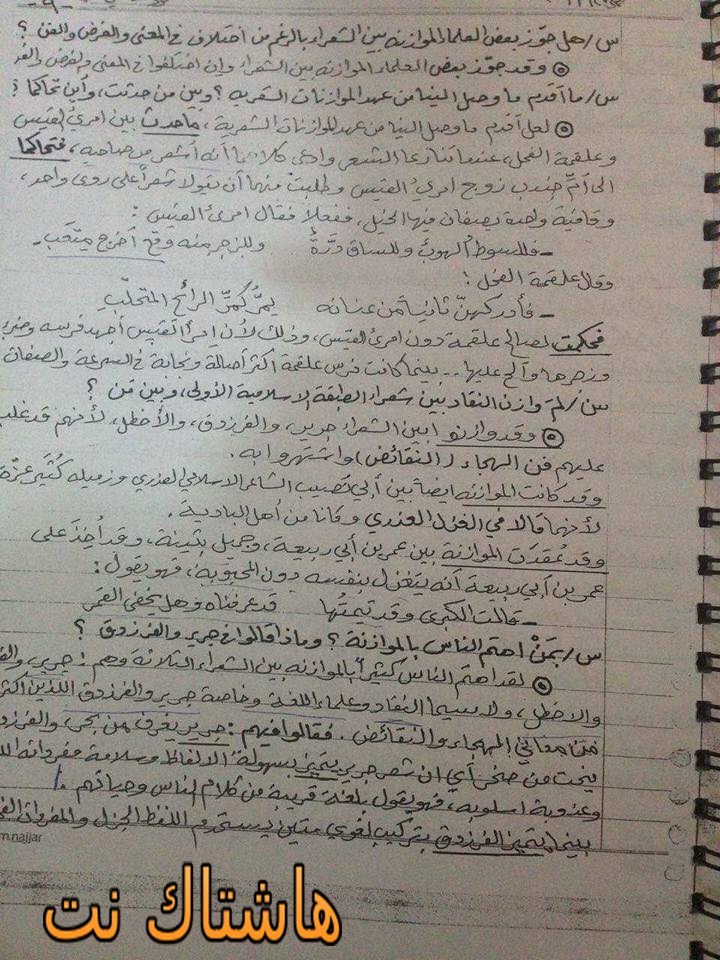 - ٩ -
س/ هل جوّز بعض العلماء الموازنة بين الشعراء بالرغم من اختلاف في المعنى والغرض والفن ؟
وقد جوّز بعض العلماء الموازنة بين الشعراء وإن اختلفوا في المعنى والغرض
س/ ما أقدم ما وصل إلينا من عهد الموازنات الشعرية ؟ وبين من حدثت، وأين تحاكما ؟
لعل أقدم ما وصل إلينا من عهد الموازنات الشعرية، ماحدث بين امرئ القيس
وعلقمة الفحل، عندما تنازعا الشعر وادعى كلاهما أنه أشعر من صاحبه، فتحاكما
الى أمّ جندب زوج امرئ القيس وطلبت منهما أن يقولا شعراً على روي واحد،
وقافية واحدة يصفان فيها الخيل، ففعلا فقال امرئ القيس :
- فللسوط ألهوبٌ وللساق دَرَّةٌ وللزجر منه وقع أخرج متعب -
وقال علقمة الفحل :
- فأدركهنّ ثانياً من عنانه يمُّر كمرِّ الرائح المتحلّب
فحكمت لصالح علقمة دون امرئ القيس، وذلك لأن امرأ القيس أجهد فرسه
وزجرها وألح عليها .. بينما كانت فرس علقمة أكثر أصالة ونجابة في السرعة والصفات
س/ لمَ وازن النقاد بين شعراء الطبقة الاسلامية الأولى، وبين مَن ؟
وقد وازنو ا بين الشعراء جرير، والفرزدق، والأخطل، لأنهم قد غلب
عليهم فن الهجاء (النقائض) واشتهروا به .
وقد كانت الموازنة ايضاً بين أبي نصيب الشاعر الاسلامي العذري وزميله كُثَير عزّة
لأنهما قالا في الغزل العذري وكانا من أهل البادية .
وقد عُقدَت الموازنة بين عمر بن أبي ربيعة، وجميل بثينة، وقد أُخِذَ على
عمر بن أبي ربيعة أنه يتغزل بنفسه دون المحبوبة، فهو يقول :
- قالت الكبرى وقد تيمتُها قد عرفناه وهل يخفى القمر
س/ بمَنْ اهتم الناس بالموازنة ؟ وماذا قالوا في جرير والفرزدق ؟
لقد اهتم الناس كثيراً بالموازنه بين الشعراء الثلاثة وهم : جرير،
والاخطل، ولا سيما النقاد وعلماء اللغة وخاصة جرير والفرزدق اللذين
من معاني الهجاء والنقائض . فقالوا فيهم : جرير يغرف من بحر،
ينحت من صخر، أي ان شعر جرير يتميز بسهولة الالفاظ وسلامة مفرداته
وعذوبة اسلوبه، فهو يقول بلغة قريبة من كلام الناس وحياتهم .
بينما يتميز الفرزدق بتركيب لغوي متين يستخدم اللفظ الجزل والمفردات
m.najjar
هاشتاك نت